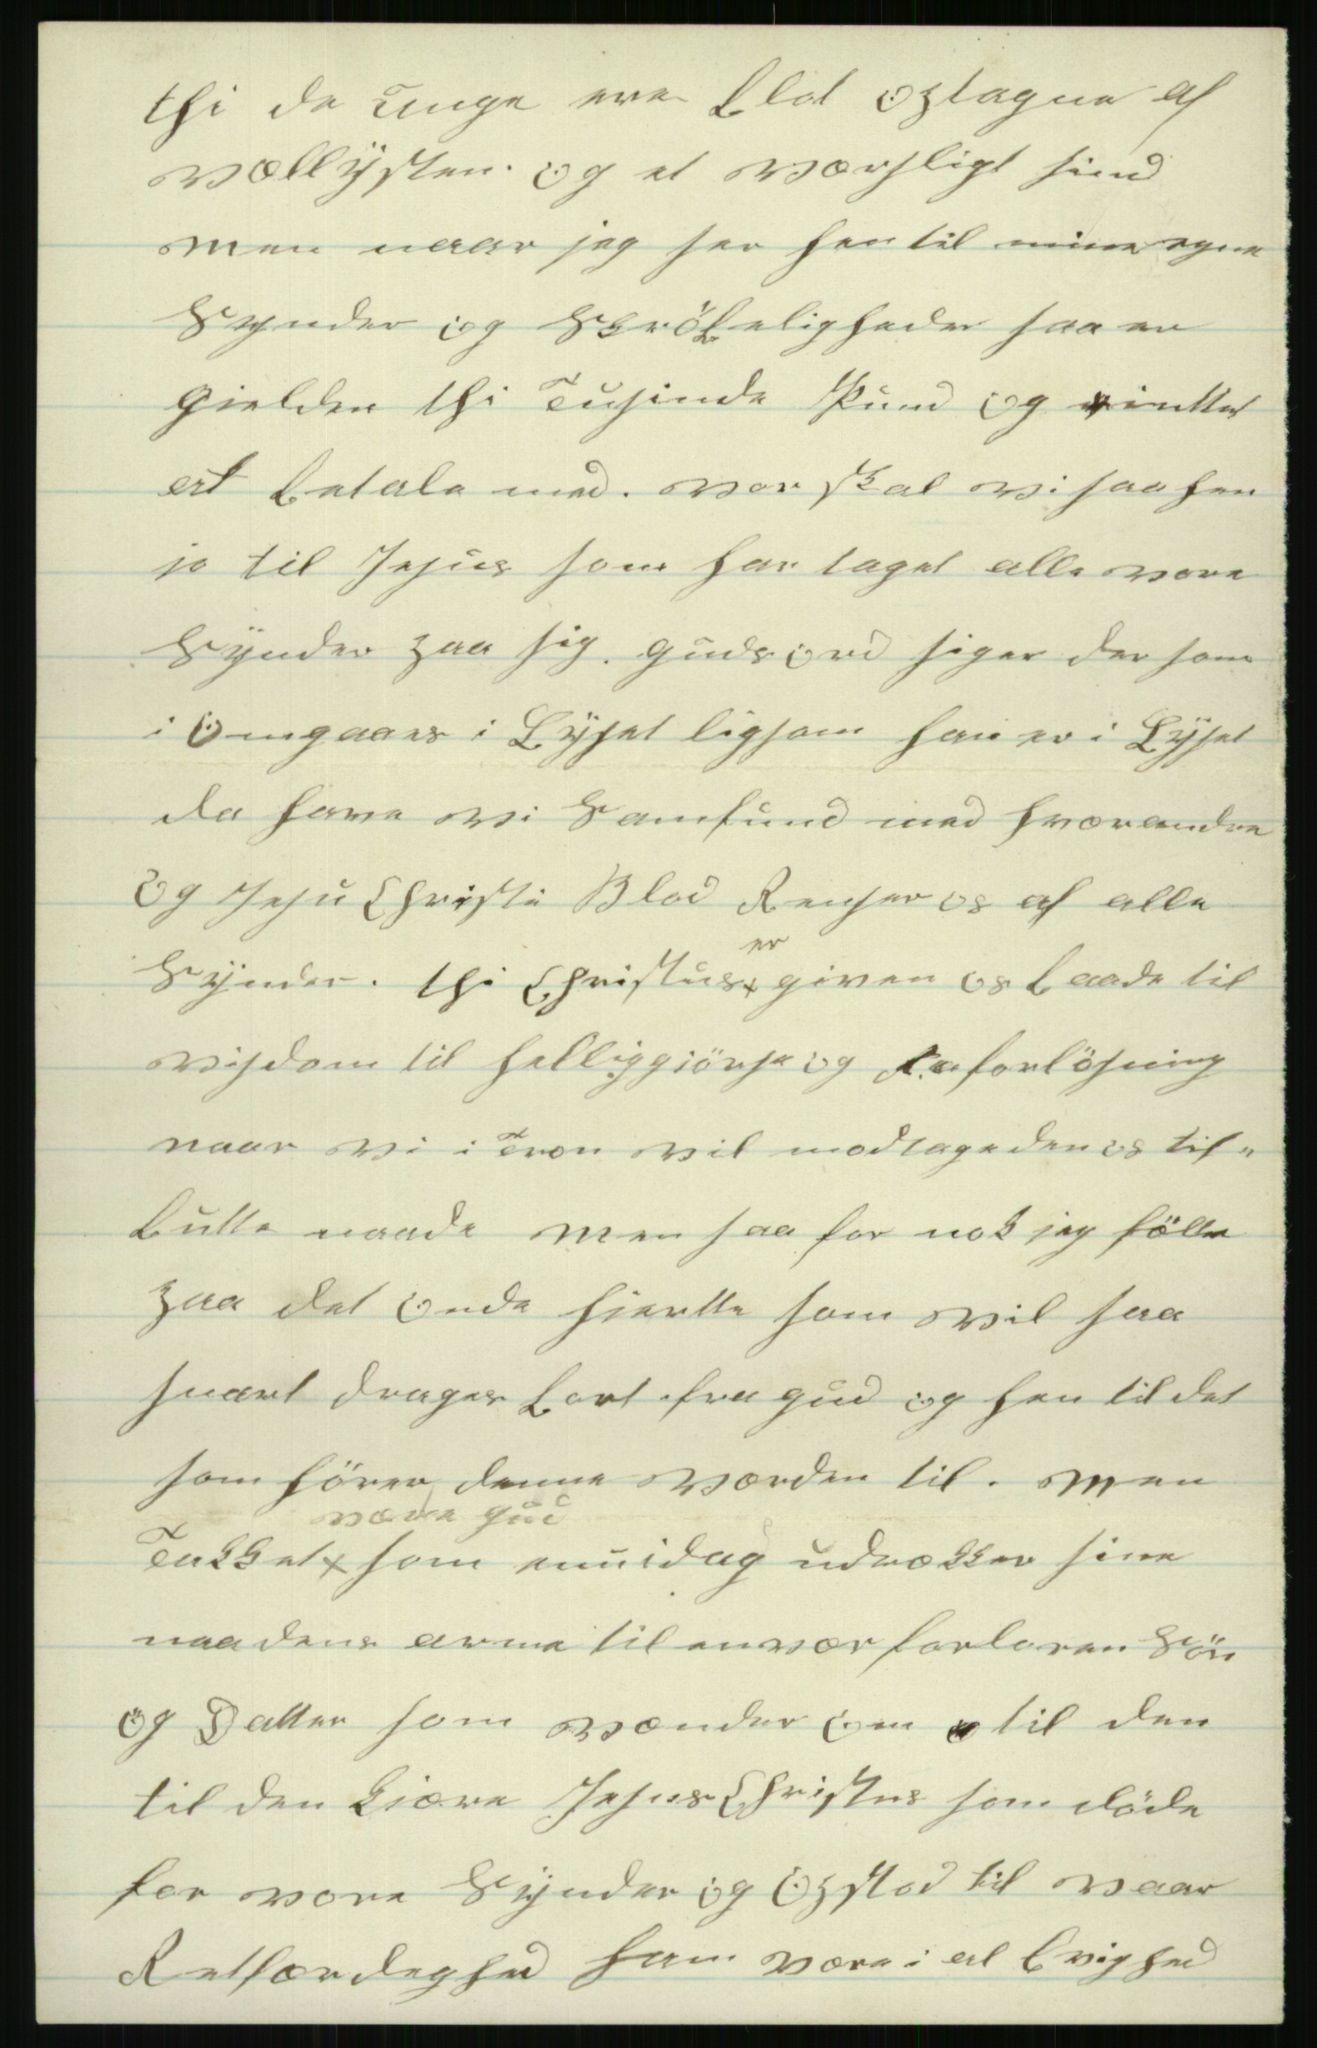 thi de unge ere blot optagne af
vællysten og et værsligt sind
men naar jeg ser hen til mine egne
Synder og Skröbeligheder saa er
gielden thi Tusinde Pund og intet
at betale med. vor skal vi saa hen
jo til Jesus som har taget alle vore
Synder paa sig. guds ord siger der som
i Omgaaes i Lyset ligsom han er i Lyset
da have vi Samfund med hværandre
og Jesu Christi Blod Renser os af alle
Synder. thi Christus er given os baade til
visdom til helliggiörse og forlösning
naar vi i Troen vil modtage den os til-
butte naade men saa for nok jeg fölle
paa det onde hjertte som vil saa
snart drages bort fra gud og hen til det
som hörer denne værden til. men
Takket være gud som enu idag udrækker sine
naadens arme til en vær forloren Sön
og Datter som vænder om til den
til den kiære Jesus Christus som döde
for vore Synder og Opstod til vaar
Retfærdeghed ham være i al Evighed